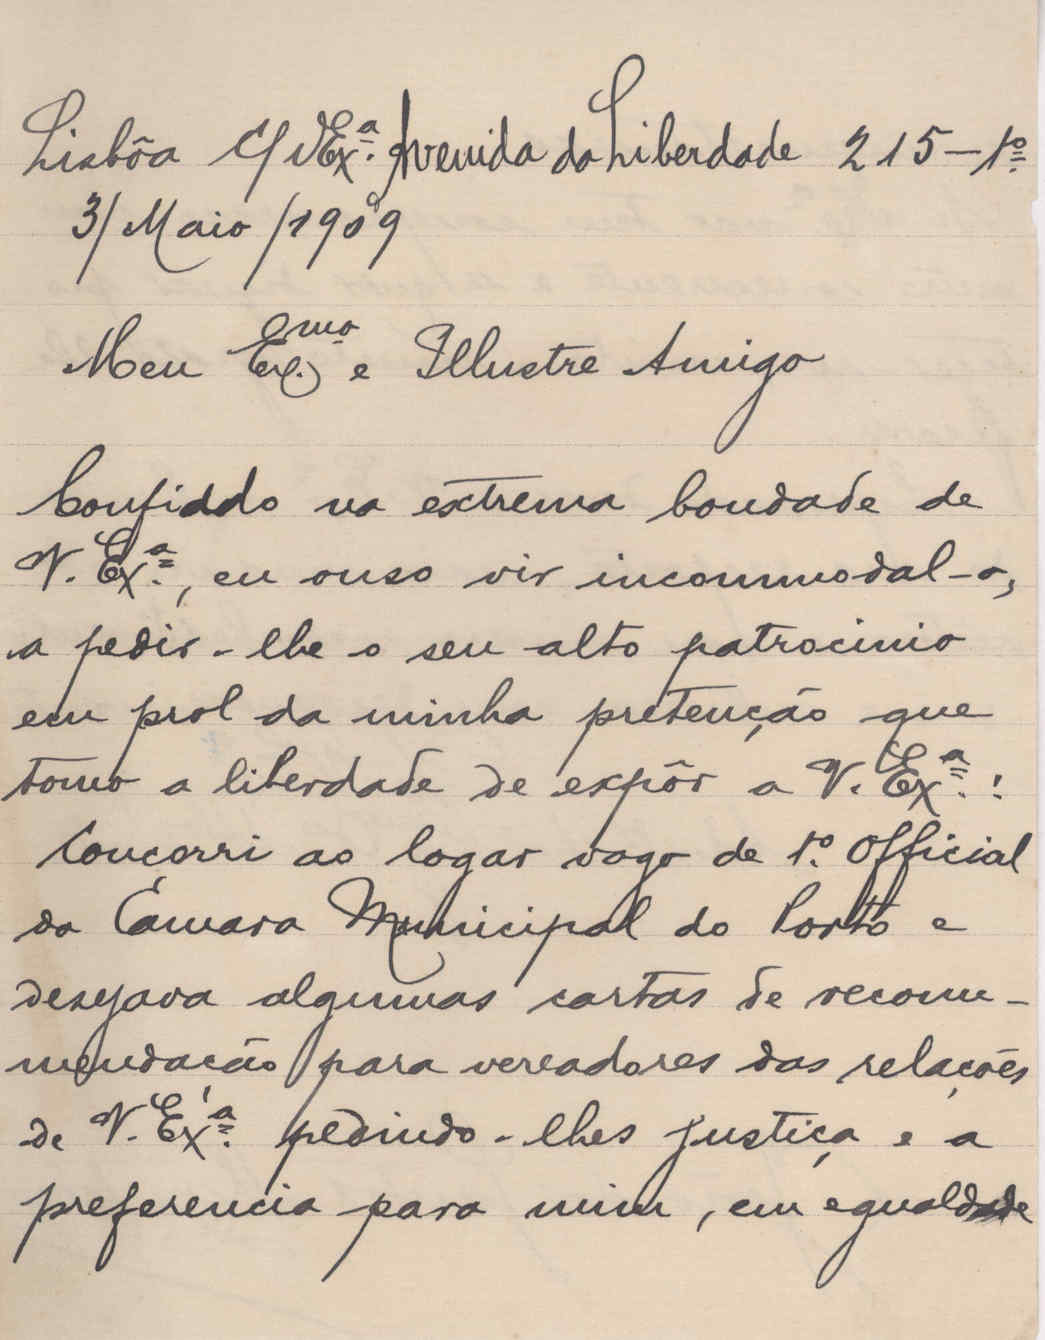 Lisbôa C/V Ex.ª Avenida da Liberdade 215-1º
3/Maio/1909
Meu Ex.mo e Illustre Amigo
Confiado na extrema bondade de
V. Ex.ª, eu ouso vir incommodal-o,
a pedir-lhe o seu alto patrocinio
em prol da minha pretenção que
tomo a liberdade de expôr a V. Ex.ª:
Concorri ao logar vago de 1.º Official
da Câmara Municipal do Porto e
desejava algumas cartas de recom-
mendação para vereadores das relações
de V. Ex.ª pedindo-lhes justiça e a
preferencia para mim, em egualdade